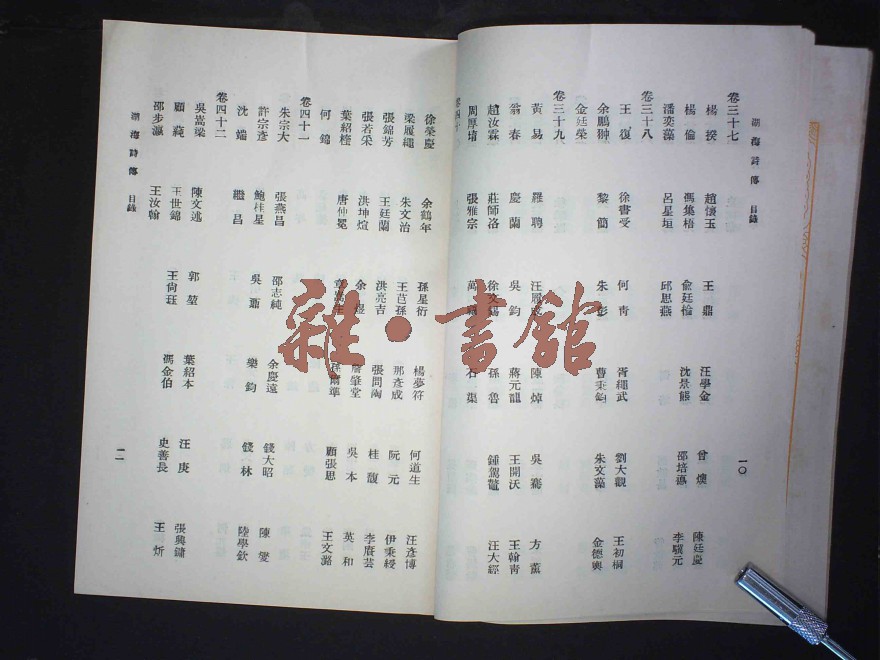 湖海詩傳 目錄
卷三十七
楊揆 趙懷玉 王鼎 汪學金 曾燠 陳廷慶
楊倫 馮集梧 金廷倫 沈景熊 邵培悳 李驥元
潘奕藻 呂星垣 邱思燕
卷三十八
王復 徐書受 何青 胥繩武 劉大觀 王初桐
余鵬翀 黎簡 朱彭 曹秉鈞 朱文藻 金德輿
金廷榮
卷三十九
黃易 羅聘 汪履 陳焯 吳騫 方薰
翁春 慶蘭 吳鈞 蔣元龍 王開沃 王翰青
趙汝霖 莊師洛 徐 錫 孫魯 鍾駕鼇 汪大經
周厚堉 張雅宗 萬 石渠
卷四十
一〇
徐榮慶 余鶴年 孫星衍 楊夢符 何道生 汪彥博
梁履繩 朱文治 王芑孫 那彥成 阮元 伊秉綬
張錦芳 王廷蘭 洪亮吉 張問陶 桂馥 李賡芸
張若采 洪坤煊 余煜 詹肇堂 吳本 英和
葉紹楏 唐仲冕 孫爾準 顧張思 王文潞
何錦
卷四十一
朱宗大 張燕昌 邵志純 余慶遠 錢大昭 陳燮
許宗彥 鮑桂星 吳鼒 樂鈞 錢林 陸學欽
沈端 繼昌
卷四十二
吳嵩梁 陳文述 郭堃 葉紹本 汪庚 張興鏞
顧蒓 王世錦 王尙珏 馮金伯 史善長 王炘
邵步瀛 王汝翰
湖海詩傳 目錄
一一
雜·書館